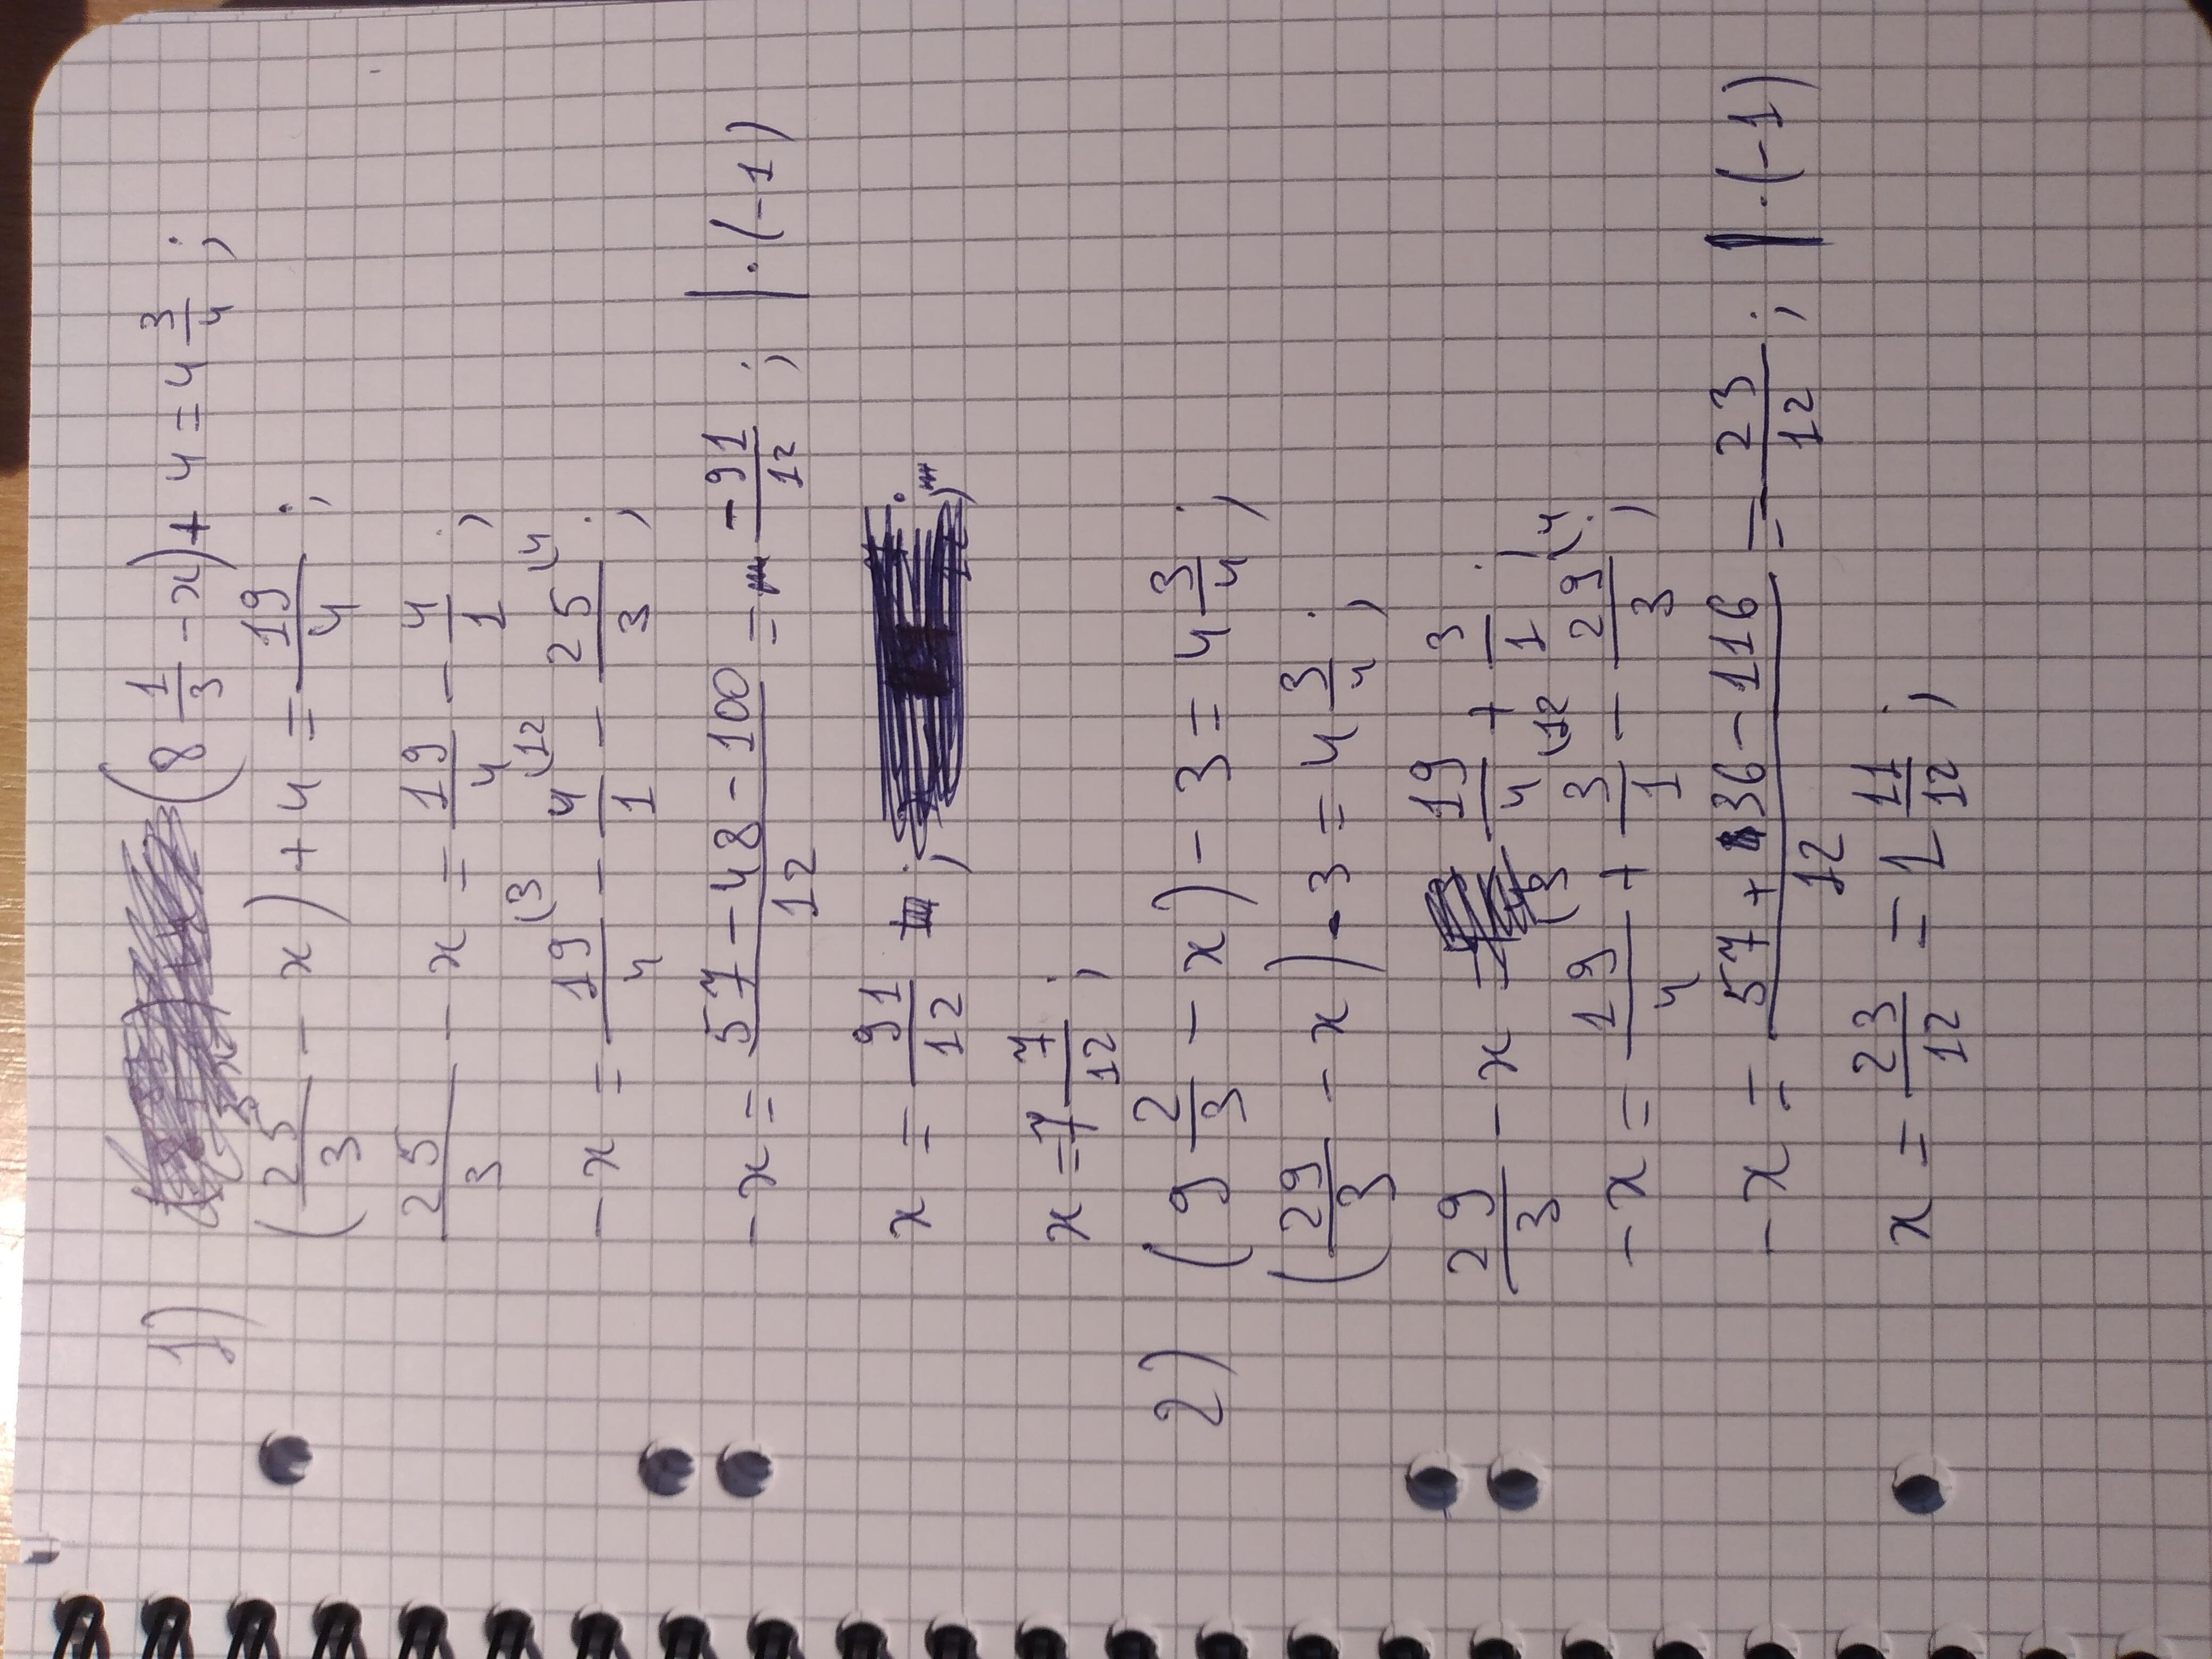 1) (8 1/3 - x) + 4 = 4 3/4 ;
(25/3 - x) + 4 = 19/4 ;
25/3 - x = 19/4 - 4/1 ;
-x = 19/4 (3 - 4/1 (12 - 25/3 (4 ;
-x = (57 - 48 - 100)/12 = -91/12 ; | · (-1)
x = 91/12 ;
x = 7 7/12 ;
2) (9 2/3 - x) - 3 = 4 3/4 ;
(29/3 - x) - 3 = 4 3/4 ;
29/3 - x = 19/4 + 3/1 ;
-x = 19/4 (3 + 3/1 (12 - 29/3 (4 ;
-x = (57 + 36 - 116)/12 = -23/12 ; | · (-1)
x = 23/12 = 1 11/12 ;